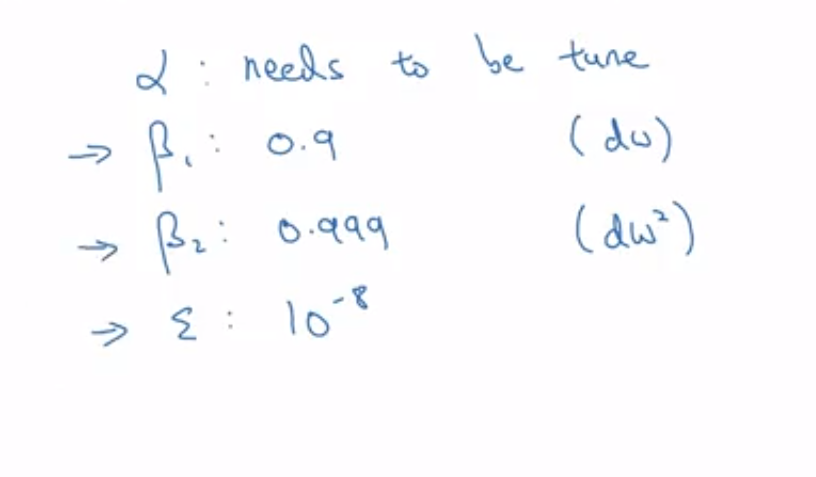 α : needs to be tune
→ β₁ : 0.9 (dw)
→ β₂ : 0.999 (dw²)
→ ε : 10⁻⁸